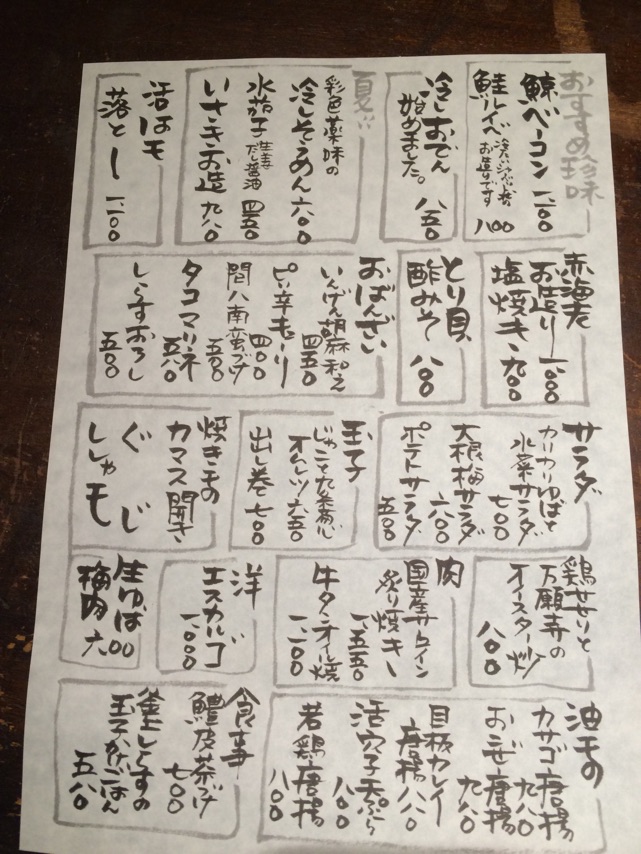 おすすめ珍味
鯨ベーコン 一、二〇〇
鮭ルイベ
お造りです
八〇〇
冷しおでん
始めました。
八五〇
夏！！
彩色薬味の
冷しそうめん 六〇〇
水茄子 生姜だし醤油 四五〇
いさきお造 九八〇
活はも
落とし 一、二〇〇
赤海老
お造り 一、〇〇〇
塩焼き 九〇〇
とり貝
酢みそ 八〇〇
おばんざい
いんげん胡麻和え
四五〇
ピリ辛きゅーり
四〇〇
間八南蛮づけ
五〇〇
タコマリネ
五八〇
しらすおろし
五〇〇
サラダ
カリカリゆばと
水菜サラダ
七〇〇
大根梅サラダ
六〇〇
ポテトサラダ
五〇〇
玉子
じゃこと九条葱ル
オムレツ 六五〇
出し巻 七〇〇
焼きもの
カマス開き
ぐじ
ししゃも
鶏せせりと
万願寺の
オイスター炒
八〇〇
肉
国産サーロイン
炙り焼き
一、五五〇
牛タンオイル焼
一、二〇〇
洋
エスカルゴ
一、〇〇〇
生ゆば
梅肉 六〇〇
油もの
カサゴ唐揚
九八〇
おこぜ唐揚
九八〇
目板カレイ
唐揚 八八〇
活穴子天ぷら
八〇〇
若鶏唐揚
八〇〇
食事
鱧皮茶づけ
七〇〇
釜上しらすの
玉子かけごはん
五八〇